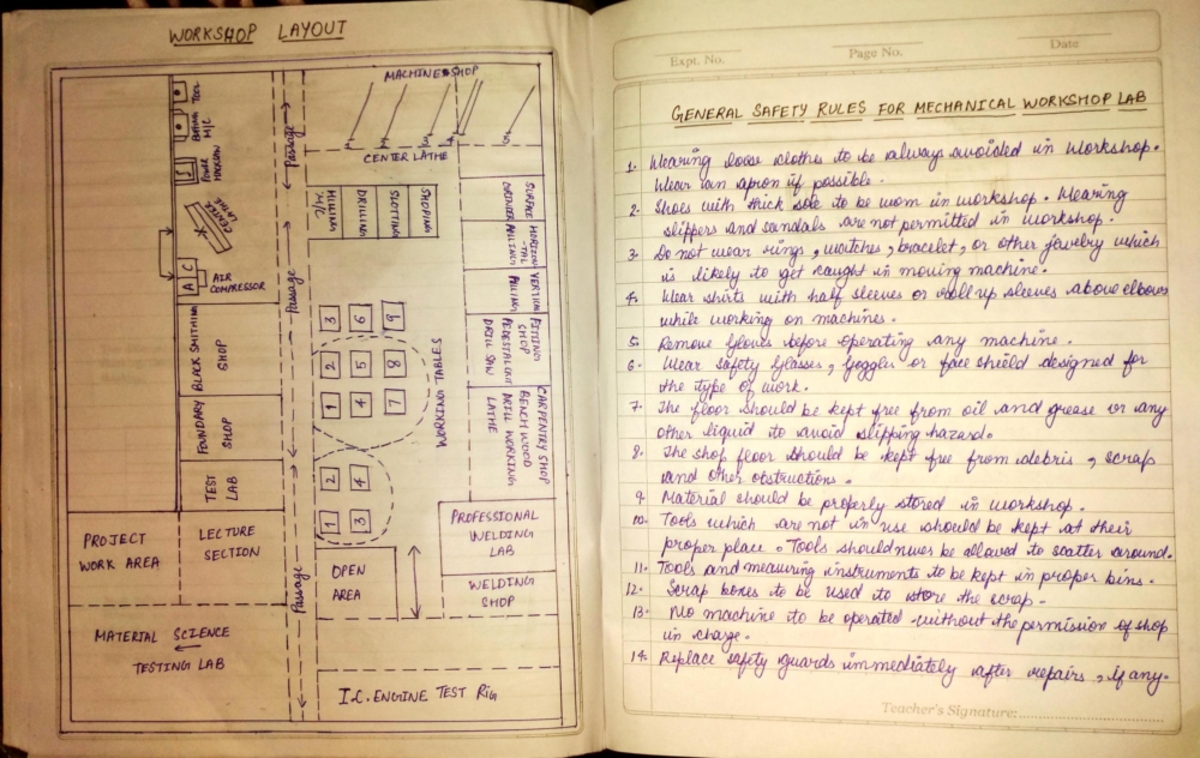 WORKSHOP LAYOUT
MACHINE SHOP
BORING TOOL
M/C
POWER
HACKSAW
CENTER
LATHE
A C
AIR
COMPRESSOR
BLACK SMITHING
SHOP
FOUNDARY
SHOP
TEST
LAB
PROJECT
WORK AREA
LECTURE
SECTION
MATERIAL SCIENCE
TESTING LAB
Passage
Passage
Passage
CENTER LATHE
MILLING
M/C
DRILLING
SLOTTING
SHAPING
SURFACE
GRINDER
HORIZON
-TAL
MILLING
VERTICAL
MILLING
FITTING
SHOP
PEDESTAL CUT
DRILL SAW
CARPENTRY SHOP
BENCH WOOD
DRILL WORKING
LATHE
3 6 9
2 5 8
1 4 7
WORKING TABLES
2 4
1 3
OPEN
AREA
PROFESSIONAL
WELDING
LAB
WELDING
SHOP
I.C. ENGINE TEST RIG
Expt. No. Page No. Date
GENERAL SAFETY RULES FOR MECHANICAL WORKSHOP LAB
1. Wearing loose clothes to be always avoided in workshop.
Wear an apron if possible.
2. Shoes with thick sole to be worn in workshop. Wearing
slippers and sandals are not permitted in workshop.
3. Do not wear rings, watches, bracelet, or other jewelry which
is likely to get caught in moving machine.
4. Wear shirts with half sleeves or roll up sleeves above elbows
while working on machines.
5. Remove Gloves before operating any machine.
6. Wear Safety Glasses, Goggles or face shield designed for
the type of work.
7. The floor should be kept free from oil and grease or any
other liquid to avoid slipping hazard.
8. The shop floor should be kept free from debris, scrap
and other obstructions.
9. Material should be properly stored in workshop.
10. Tools which are not in use should be kept at their
proper place. Tools should never be allowed to scatter around.
11. Tools and measuring instruments to be kept in proper bins.
12. Scrap boxes to be used to store the scrap.
13. No machine to be operated without the permission of shop
in charge.
14. Replace safety guards immediately after repairs, if any.
Teacher's Signature: